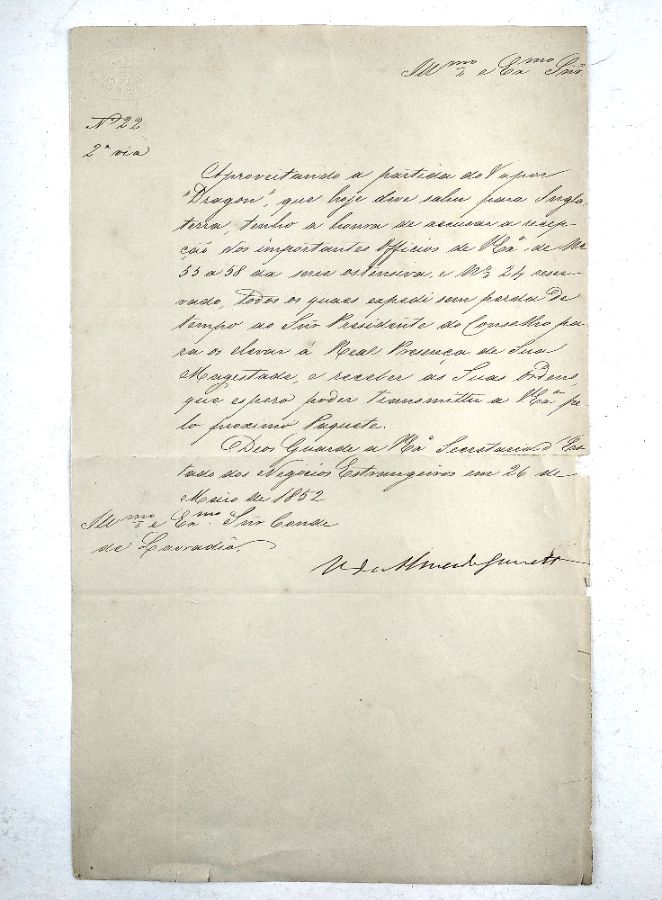 Illmo e Exmo Snr.
Nº 22
2ª via
Aproveitando a partida do Vapor
"Dragon", que hoje deve sahir para Ingla-
terra, tenho a honra de accusar a recep-
ção dos importantes Officios de V Exª de Nos
55 a 58 da serie ostensiva, e Nº 24 reser-
vado, todos os quaes expedi sem perda de
tempo ao Snr Presidente do Conselho pa-
ra os elevar á Real Presença de Sua
Magestade, e receber as Suas Ordens,
que espero poder transmittir a V Exª pe-
lo proximo Paquete.
Deos Guarde a V Exª Secretaria d'Es-
tado dos Negocios Estrangeiros em 26 de
Maio de 1852
Illmo e Exmo Snr Conde
de Lavradio.
V. de Almeida Garrett